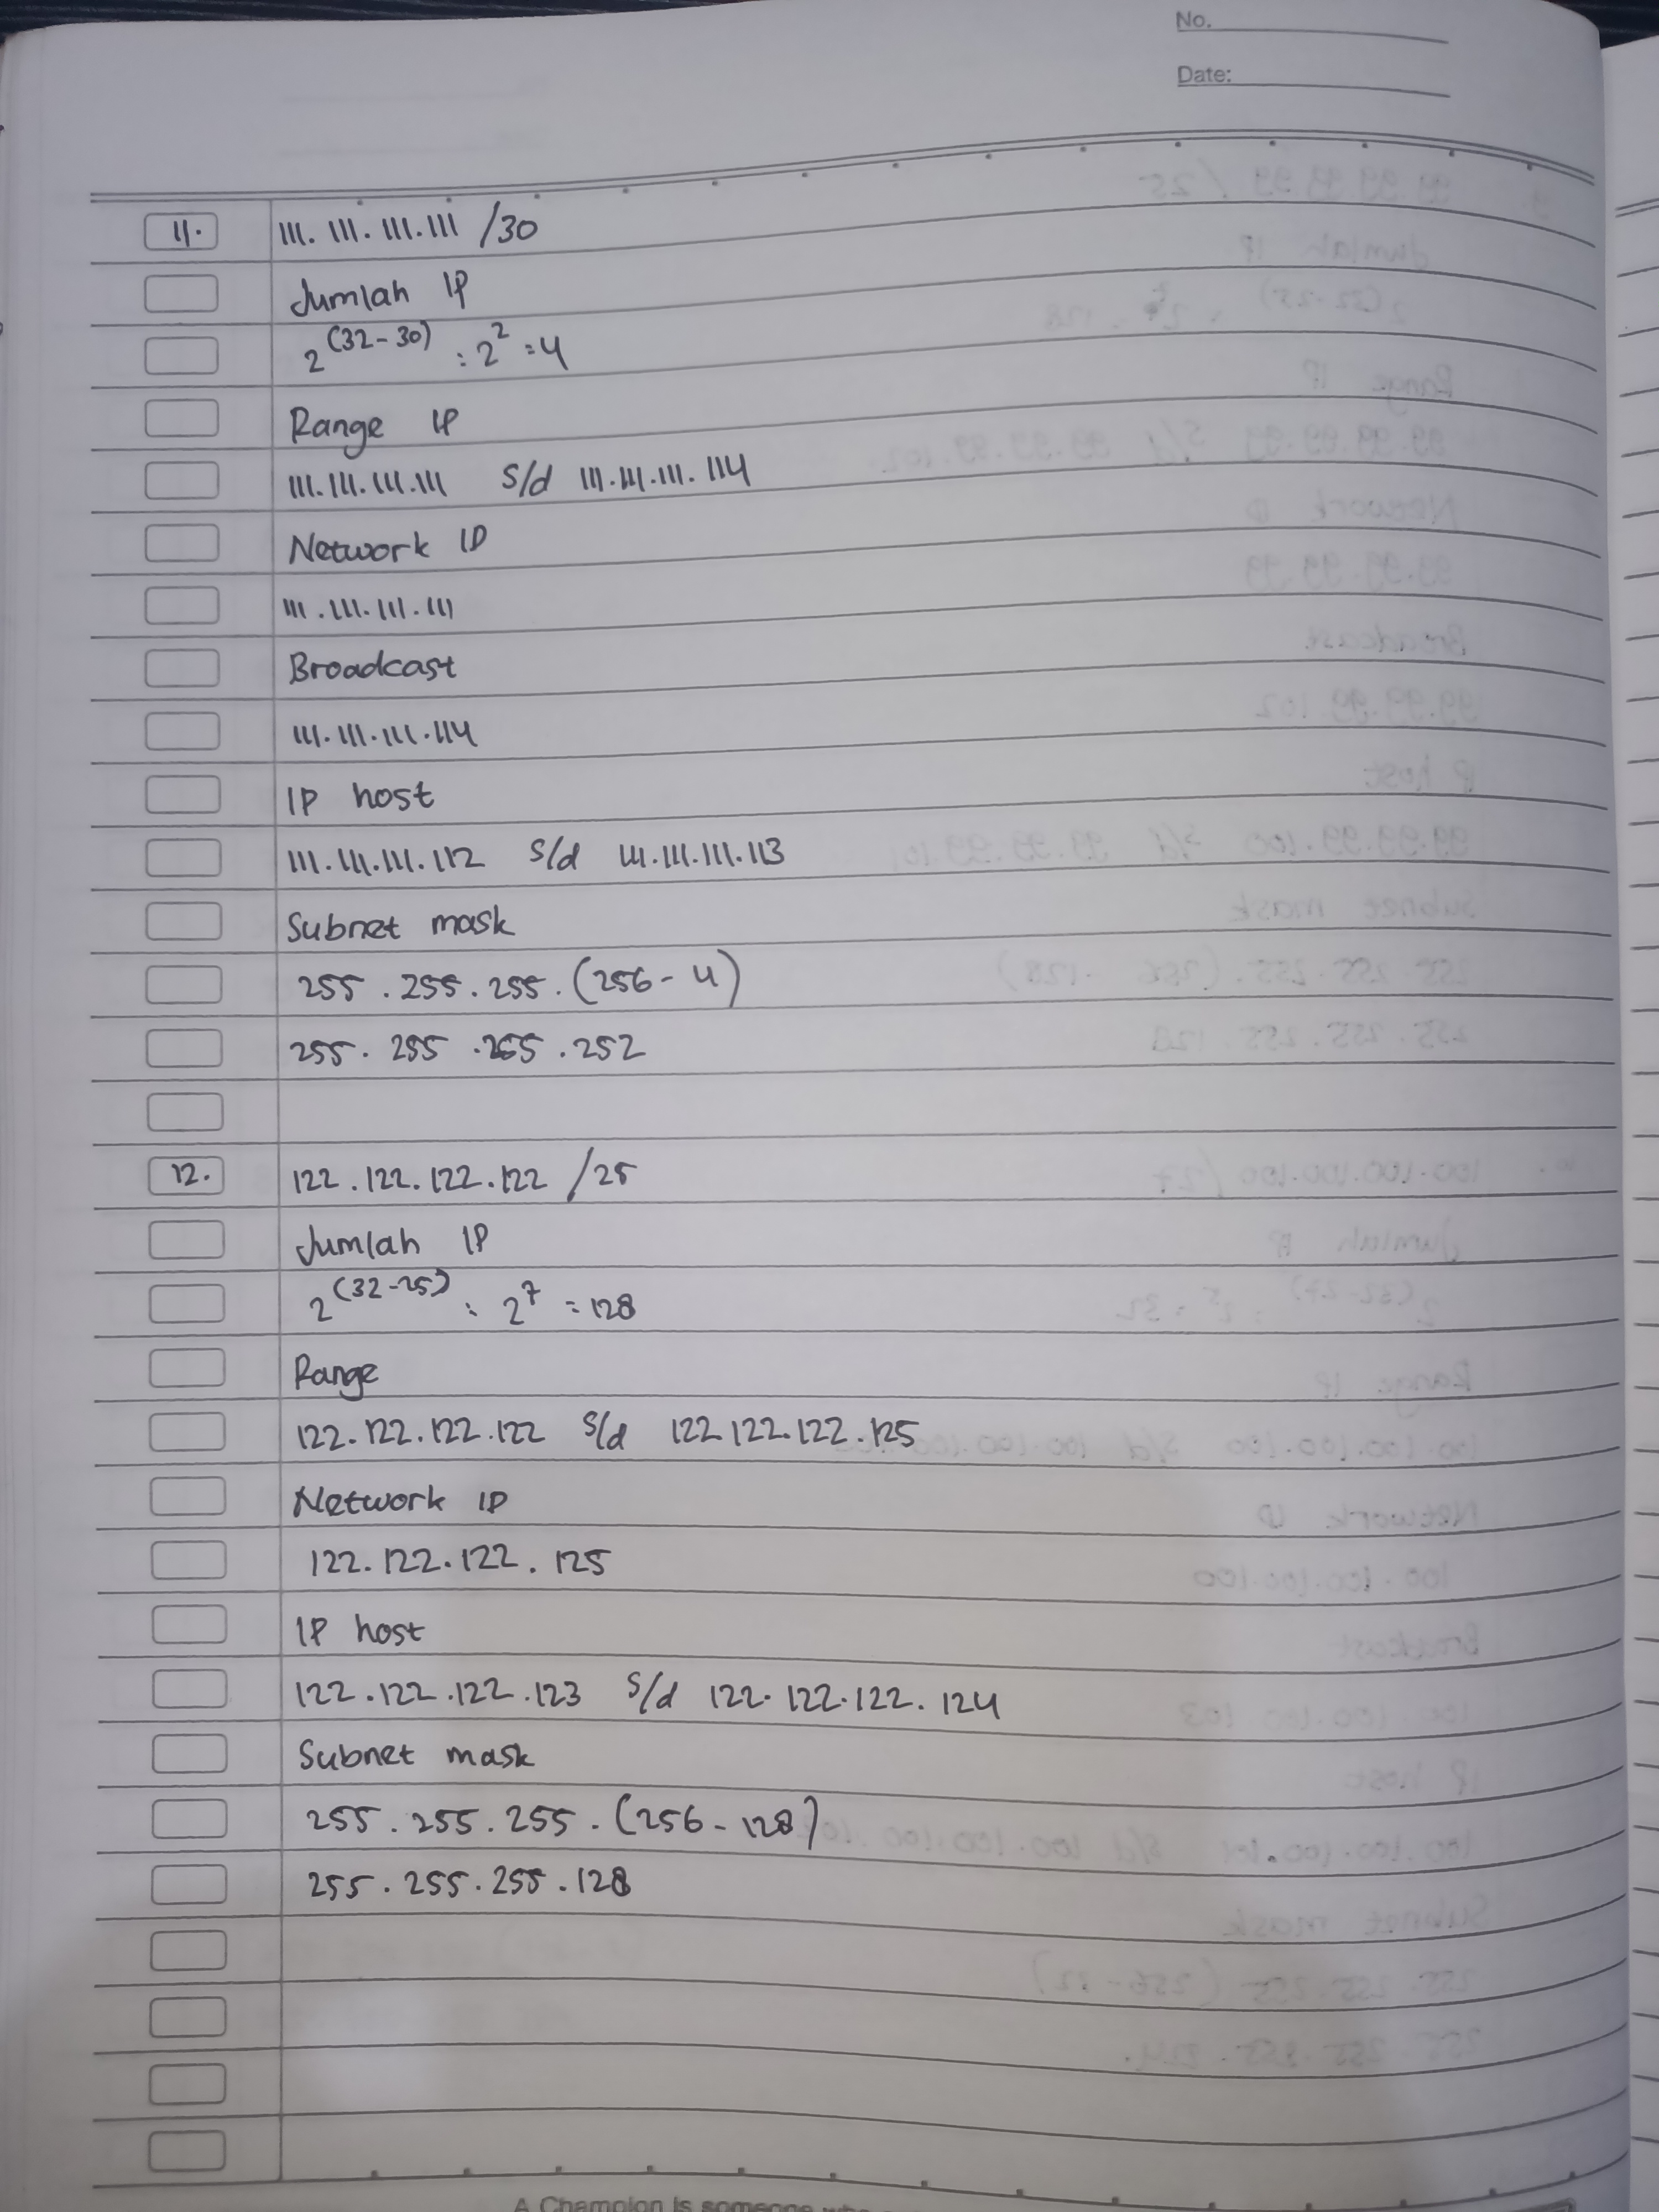 No.
Date:
11. 111.111.111.111 /30
Jumlah IP
2^(32-30) : 2^2 = 4
Range IP
111.111.111.111 s/d 111.111.111.114
Network ID
111.111.111.111
Broadcast
111.111.111.114
IP host
111.111.111.112 s/d 111.111.111.113
Subnet mask
255.255.255.(256-4)
255.255.255.252
12. 122.122.122.122 /25
Jumlah IP
2^(32-25) : 2^7 = 128
Range
122.122.122.122 s/d 122 122.122.125
Network ID
122.122.122.125
IP host
122.122.122.123 s/d 122.122.122.124
Subnet mask
255.255.255.(256-128)
255.255.255.128
A Champion is someone who